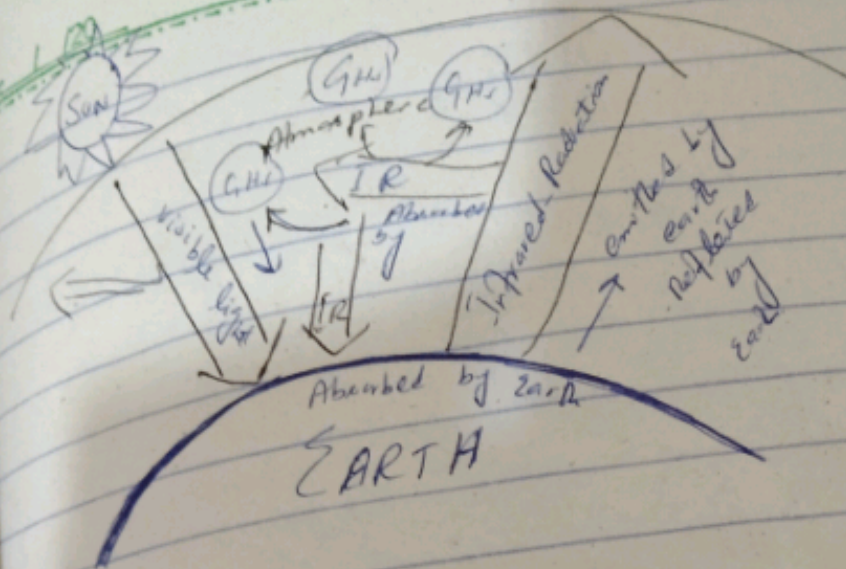 SUN
GHs
GHs
Atmosphere
GHs
IR
Absorbed
by
Visible light
IR
Infrared Radiation
emitted by
earth
Reflected
by
Earth
Absorbed by Earth
EARTH